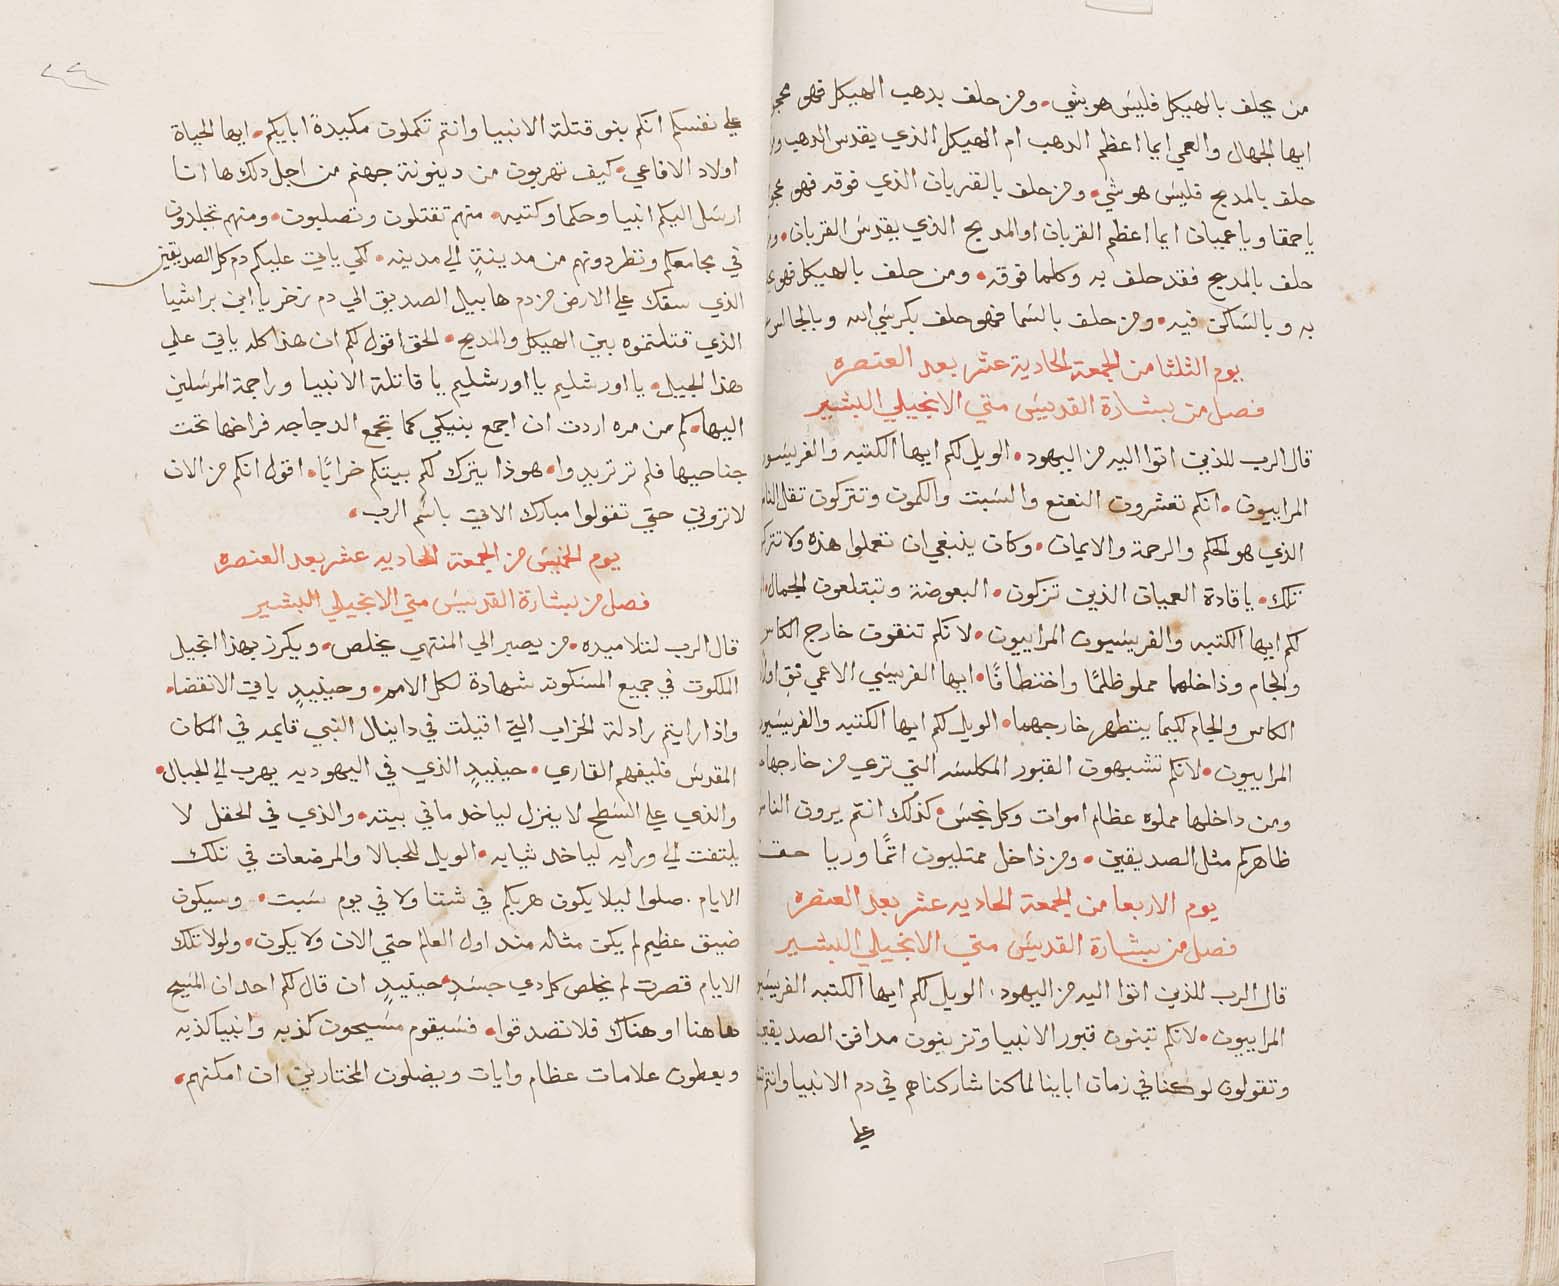 من يحلف بالهيكل فليس هو بشي. ومن حلف بدهب الهيكل فهو
ايها الجهال والعمي ايما اعظم الدهب ام الهيكل الذي يقدس الدهب
حلف بالمدبح فليس هو شي. ومن حلف بالقربان الذي فوقه فهو
ياحمقا وياعميان ايما اعظم القربان او المدبح الذي يقدس القربان.
حلف بالمدبح فقد حلف به وكلما فوقه. ومن حلف بالهيكل فهو
به وبالساكن فيه. ومن حلف بالسما فهو حلف بكرسي الله وبالجالس
يوم الثلثا من الجمعة الحادية عشر بعد العنصره
فصل من بشارة القديس متي الانجيلي البشير
قال الرب للذين اتوا اليه من اليهود. الويل لكم ايها الكتبه والفريسو
المراييون. انكم تعشرون النعنع والسبت والكمون وتتركون تقل النا
الذي هو الحكم والرحمة والايمان. وكان ينبغي ان تعملوا هذه ولا
تلك. ياقادة العميان الذين تزكون. البعوضة وتبتلعون الجمال.
لكم ايها الكتبه والفريسيون المراييون. لانكم تنقون خارج الكاس
والجام وداخلهما مملو ظلمًا واختطافًا. ايها الفريسي الاعمي نق اولا
الكاس والجام لكيما يتطهر خارجهما. الويل لكم ايها الكتبه والفريسيو
المراييون. لانكم تشبهون القبور المكلسه التي تري من خارجها
ومن داخلها مملوه عظام اموات وكل نجس. كذلك انتم يرون النا
ظاهركم مثل الصديقين. ومن داخل ممتليون اثمًا وريا
يوم الاربعا من الجمعة الحاديه عشر بعد العنصره
فصل من بشارة القديس متي الانجيلي البشير
قال الرب للذين اتوا اليه من اليهود. الويل لكم ايها الكتبه الفريسيو
المراييون. لانكم تبنون قبور الانبيا وتزينون مدافن الصديقين
وتقولون لو كنا في زمان اباينا لما كنا شاركناهم في دم الانبيا وانتم
علي
علي نفسكم انكم بنو قتلة الانبيا وانتم تكملون مكيدة ابايكم. ايها الحياة
اولاد الافاعي. كيف تهربون من دينونة جهنم من اجل دلك ها انا
ارسل اليكم انبيا وحكما وكتبه. منهم تقتلون وتصلبون. ومنهم تجلدون
في مجامعكم وتطردونهم من مدينةٍ الي مدينه. لكي ياتي عليكم دم كل الصديقين
الذي سفك علي الارض من دم هابيل الصديق الي دم زخريا ابن براشيا
الذي قتلتموه بين الهيكل والمدبح. الحق اقول لكم ان هذا كله ياتي علي
هذا الجيل. يا اورشليم يا اورشليم يا قاتلة الانبيا وراجمة المرسلين
اليها. كم من مره اردت ان اجمع بنيكي كما تجمع الدجاجه فراخها تحت
جناحيها فلم تريدوا. هوذا يترك لكم بيتكم خرابًا. اقول انكم من الان
لا تروني حتي تقولوا مبارك الاتي باسم الرب.
يوم الخميس من الجمعة الحاديه عشر بعد العنصره
فصل من بشارة القديس متي الانجيلي البشير
قال الرب لتلاميده. من يصبر الي المنتهي يخلص. ويكرز بهذا انجيل
الملكوت في جميع المسكونه شهادة لكل الامم. وحينيدٍ ياتي الانقضا.
واذا رايتم رادلة الخراب التي اقيلت في دانيال النبي قايمه في المكان
المقدس فليفهم القاري. حينيدٍ الذي في اليهوديه يهرب الي الجبال.
والذي علي السطح لا ينزل لياخد ما في بيته. والذي في الحقل لا
يلتفت الي ورايه لياخد ثيابه. الويل للحبالا والمرضعات في تلك
الايام. صلوا ليلا يكون هربكم في شتا ولا في يوم سبت. وسيكون
ضيق عظيم لم يكن مثاله مند اول العالم حتي الان ولا يكون. ولولا تلك
الايام قصرت لم يخلص كل دي جسدٍ. حينيدٍ ان قال لكم احد ان المسيح
هاهنا او هناك فلا تصدقوا. فسيقوم مسيحون كذبه وانبيا كذبه
ويعطون علامات عظام وايات ويضلون المختارين ان امكنهم.